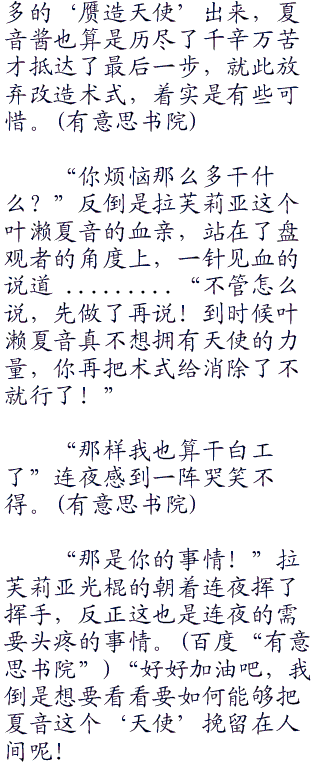 多的‘赝造天使’出来，夏
音酱也算是历尽了千辛万苦
才抵达了最后一步，就此放
弃改造术式，着实是有些可
惜。(有意思书院)
“你烦恼那么多干什
么？”反倒是拉芙莉亚这个
叶濑夏音的血亲，站在了盘
观者的角度上，一针见血的
说道 .........“不管怎么
说，先做了再说！到时候叶
濑夏音真不想拥有天使的力
量，你再把术式给消除了不
就行了！”
“那样我也算干白工
了”连夜感到一阵哭笑不
得。(有意思书院)
“那是你的事情！”拉
芙莉亚光棍的朝着连夜挥了
挥手，反正这也是连夜的需
要头疼的事情。(百度“有意
思书院”)“好好加油吧，我
倒是想要看看要如何能够把
夏音这个‘天使’挽留在人
间呢！